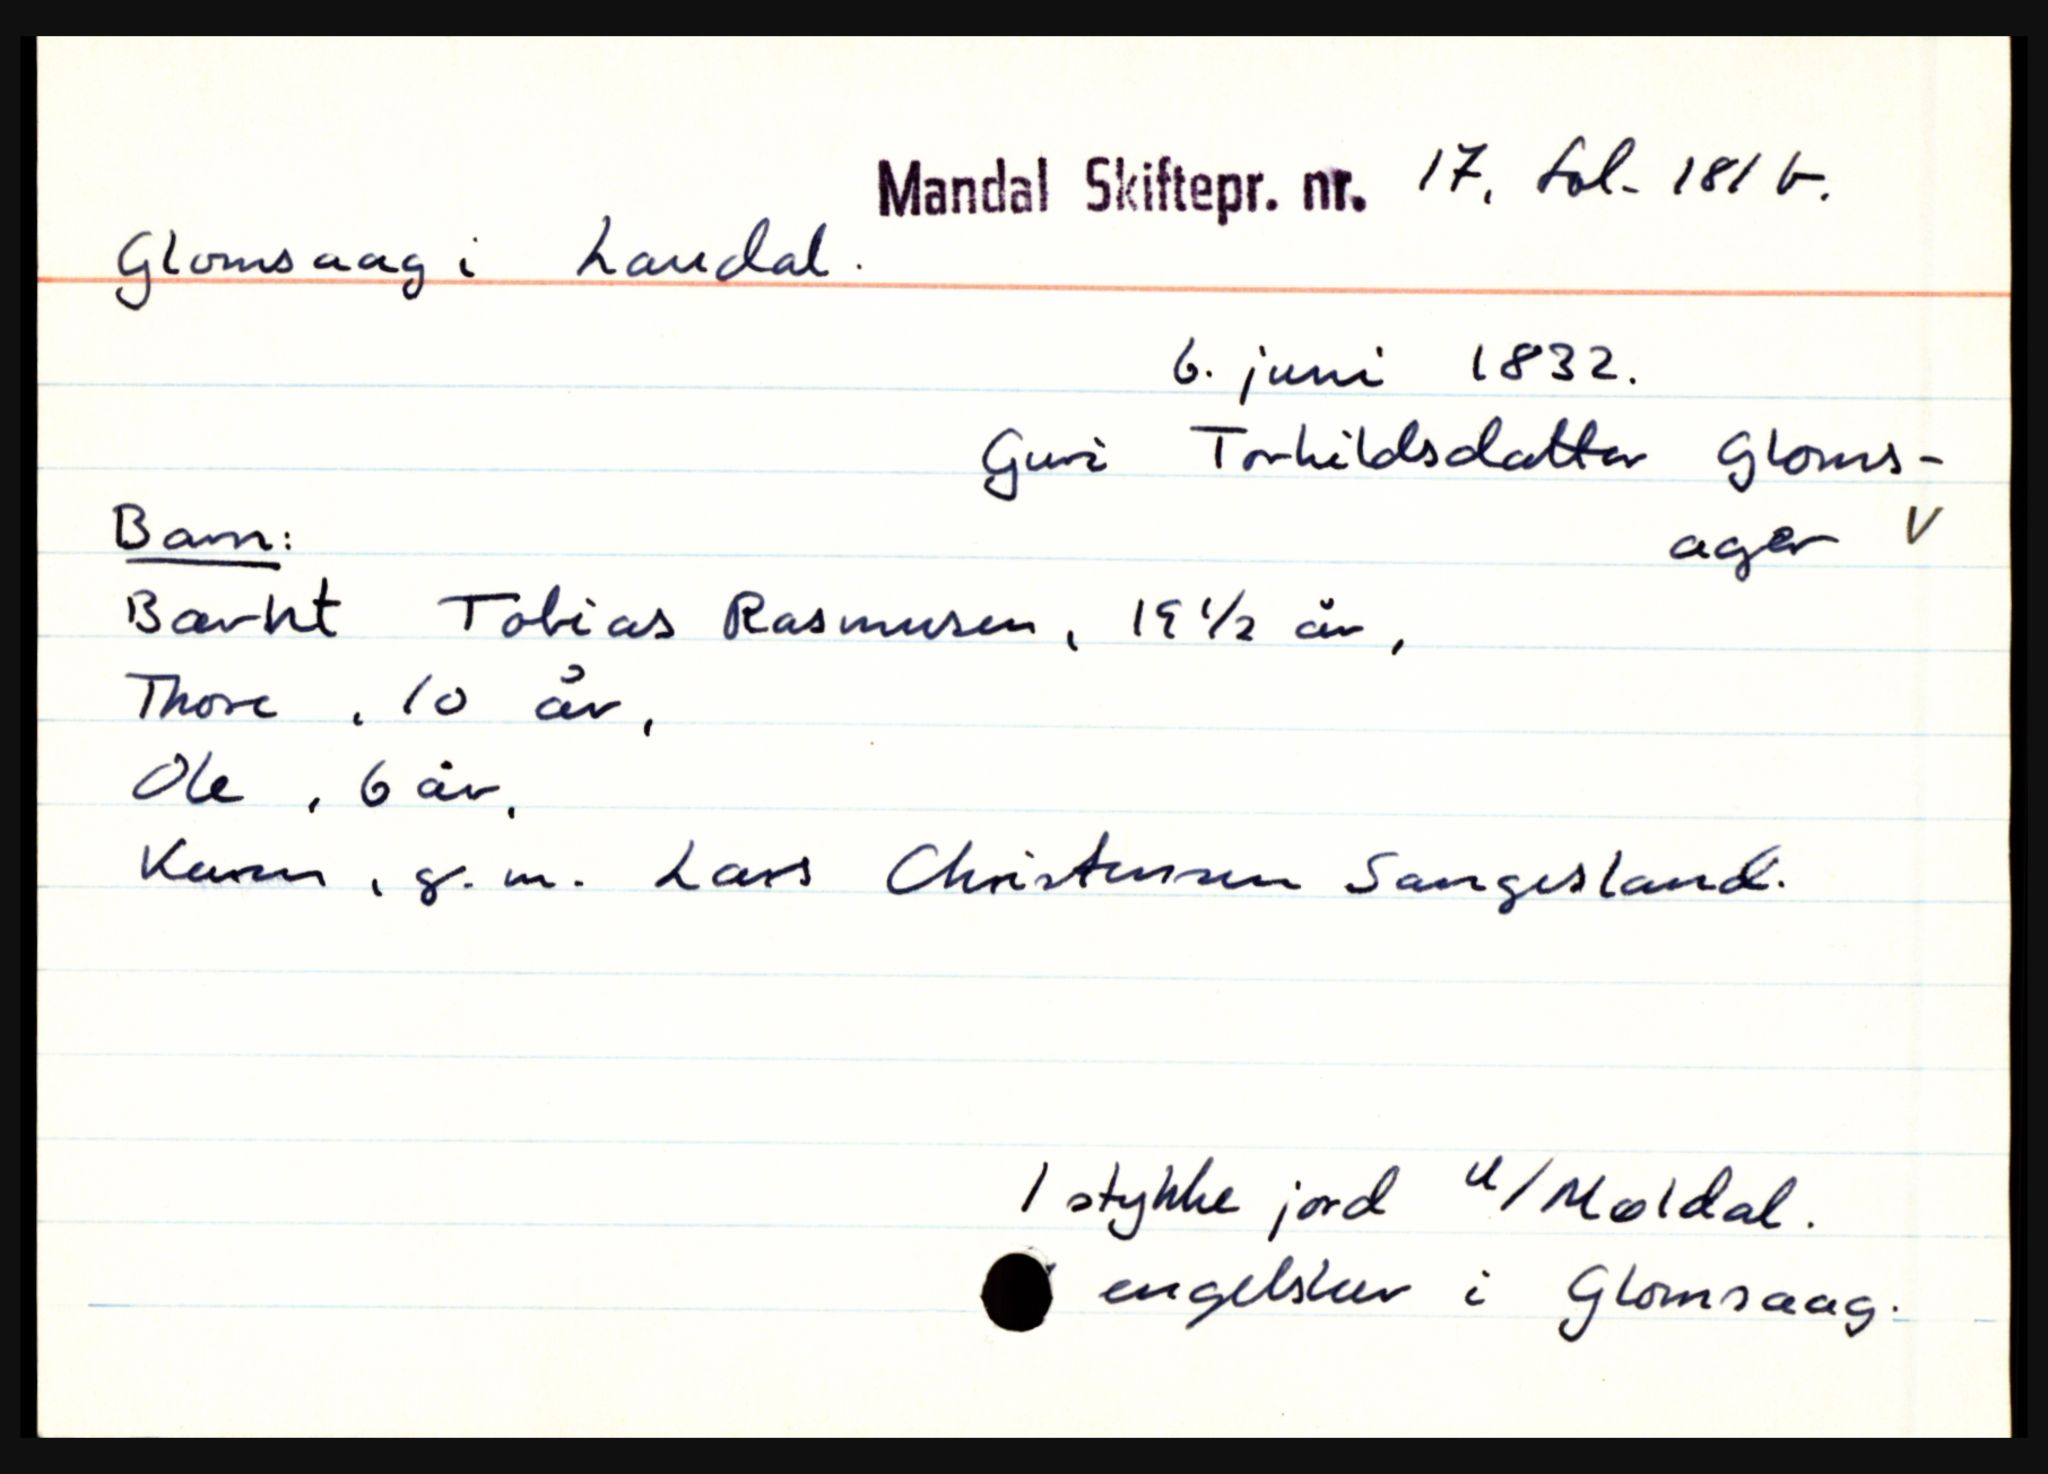 Mandal Skiftepr. nr. 17. fol. 181 b.
Glomsaag i Laudal.
6. juni 1832.
Guri Torkildsdatter Gloms-
ager V
Barn:
Tobias Rasmusen, 19 1/2 år,
Thore, 10 år,
Ole, 6 år,
Karen, g. m. Lars Christensen Sangesland.
1 stykke jord u/Møldal.
i Glomsaag.